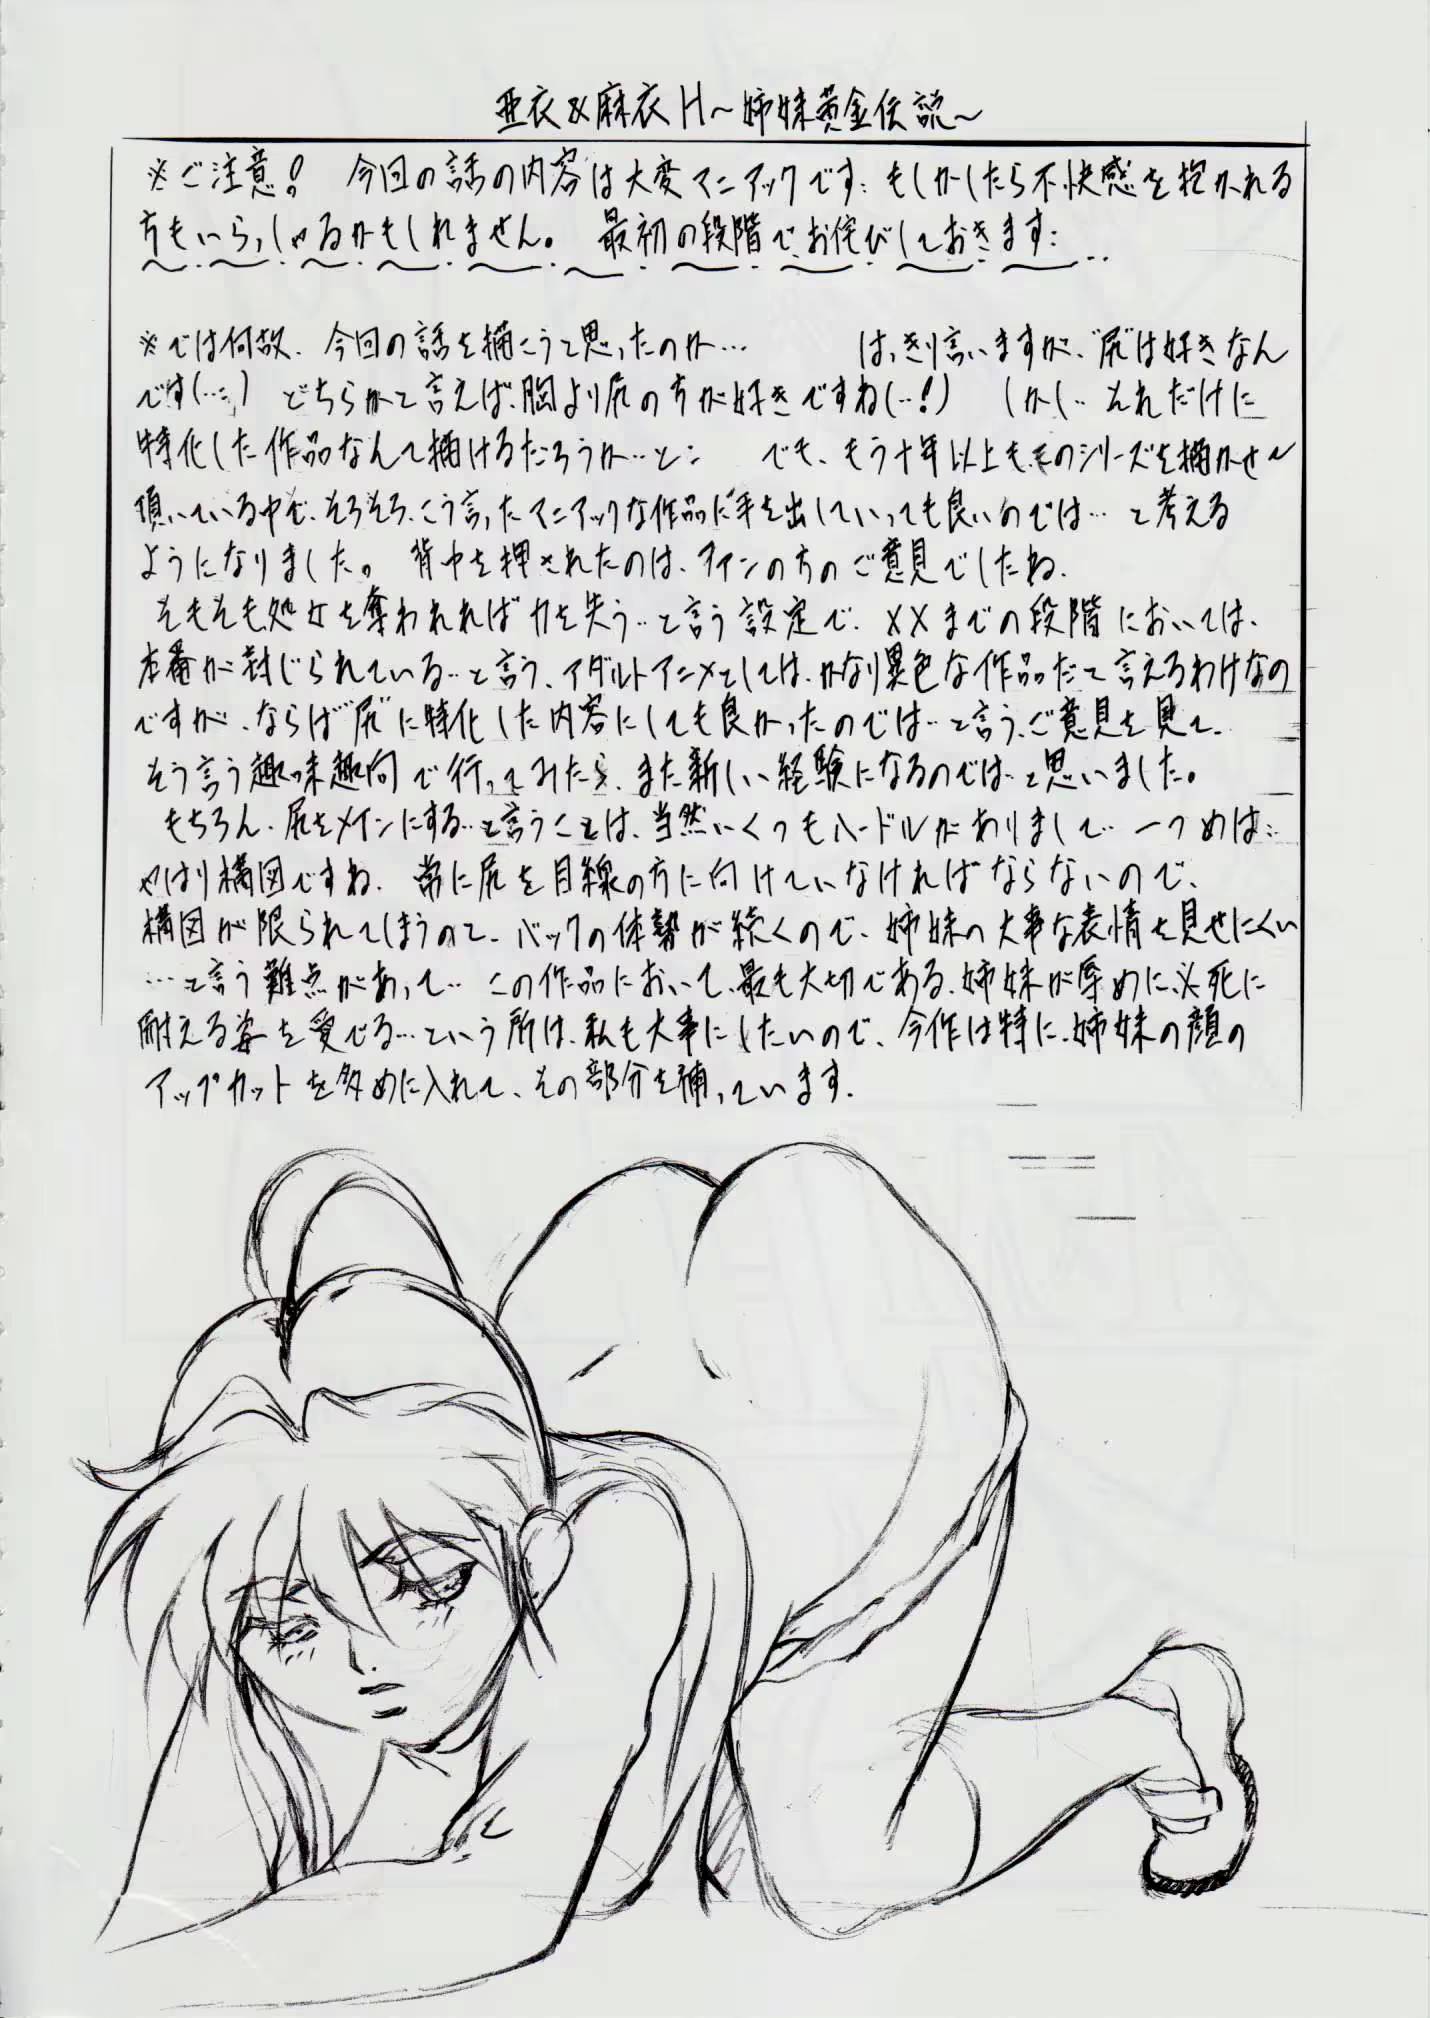 亜衣&麻衣H～姉妹黄金伝説～
※ご注意! 今回の話の内容は大変マニアックです… もしかしたら不快感を抱かれる
方もいらっしゃるかもしれません。 最初の段階でお侘びしておきます…
※では何故、今回の話を描こうと思ったのか… はっきり言いますが、"尻"は好きなん
です(…) どちらかと言えば、胸より尻の方が好きですね(…!) しかし… それだけに
特化した作品なんて描けるだろうか…と… でも、もう十年以上も、そのシリーズを描かせて
頂いている中で、そろそろ、こう言ったマニアックな作品に手を出していっても良いのでは… と考える
ようになりました。 背中を押されたのは、ファンの方のご意見でしたね、
そもそも処女を奪われれば力を失う…と言う設定で、××までの段階においては、
本番が封じられている…と言う、アダルトアニメとしては、かなり異色な作品だと言えるわけなの
ですが、ならば"尻"に特化した内容にしても良かったのでは…と言う、ご意見を見て、
そう言う趣味趣向で行ってみたら、また新しい経験になるのでは…と思いました。
もちろん、尻をメインにする…と言うことは、当然いくつもハードルがありまして… 一つめは…
やはり構図ですね、 常に尻を目線の方に向けていなければならないので、
構図が限られてしまうので、バックの体勢が続くので、姉妹の大事な表情を見せにくい
…と言う難点があって… この作品において、最も大切である、姉妹が辱めに、必死に
耐える姿を愛でる…という所は、私も大事にしたいので、今作は特に、姉妹の顔の
アップカットを多めに入れて、その部分を補っています、